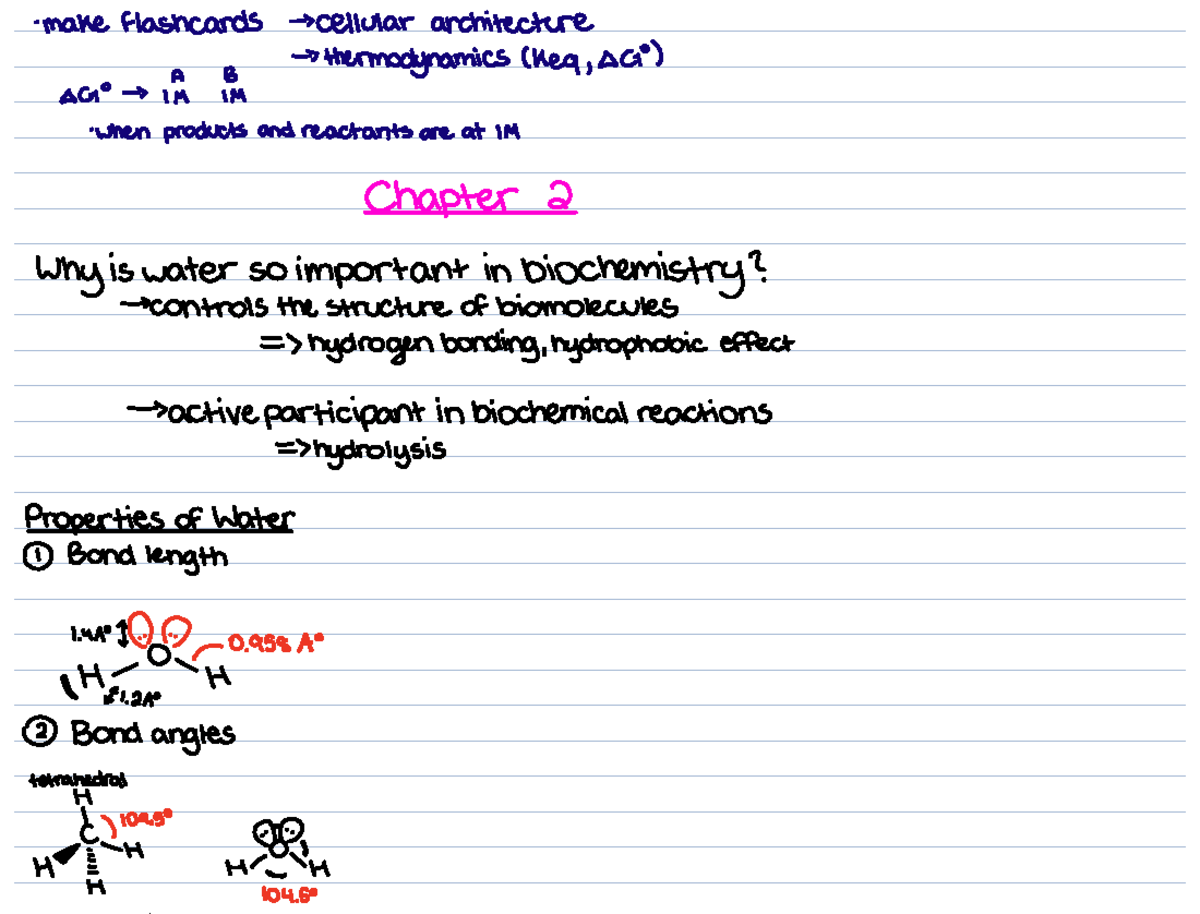 ·make flashcards →cellular architecture
→thermodynamics (Keq, ΔG°)
A B
ΔG° → 1M 1M
·when products and reactants are at 1M
Chapter 2
Why is water so important in biochemistry?
→controls the structure of biomolecules
=> hydrogen bonding, hydrophobic effect
→active participant in biochemical reactions
=> hydrolysis
Properties of Water
① Bond length
1.4A° ↕ 0.958 A°
O
H H
1.2A°
② Bond angles
tetrahedral
H
109.5°
C
H H
H
O
H H
104.5°